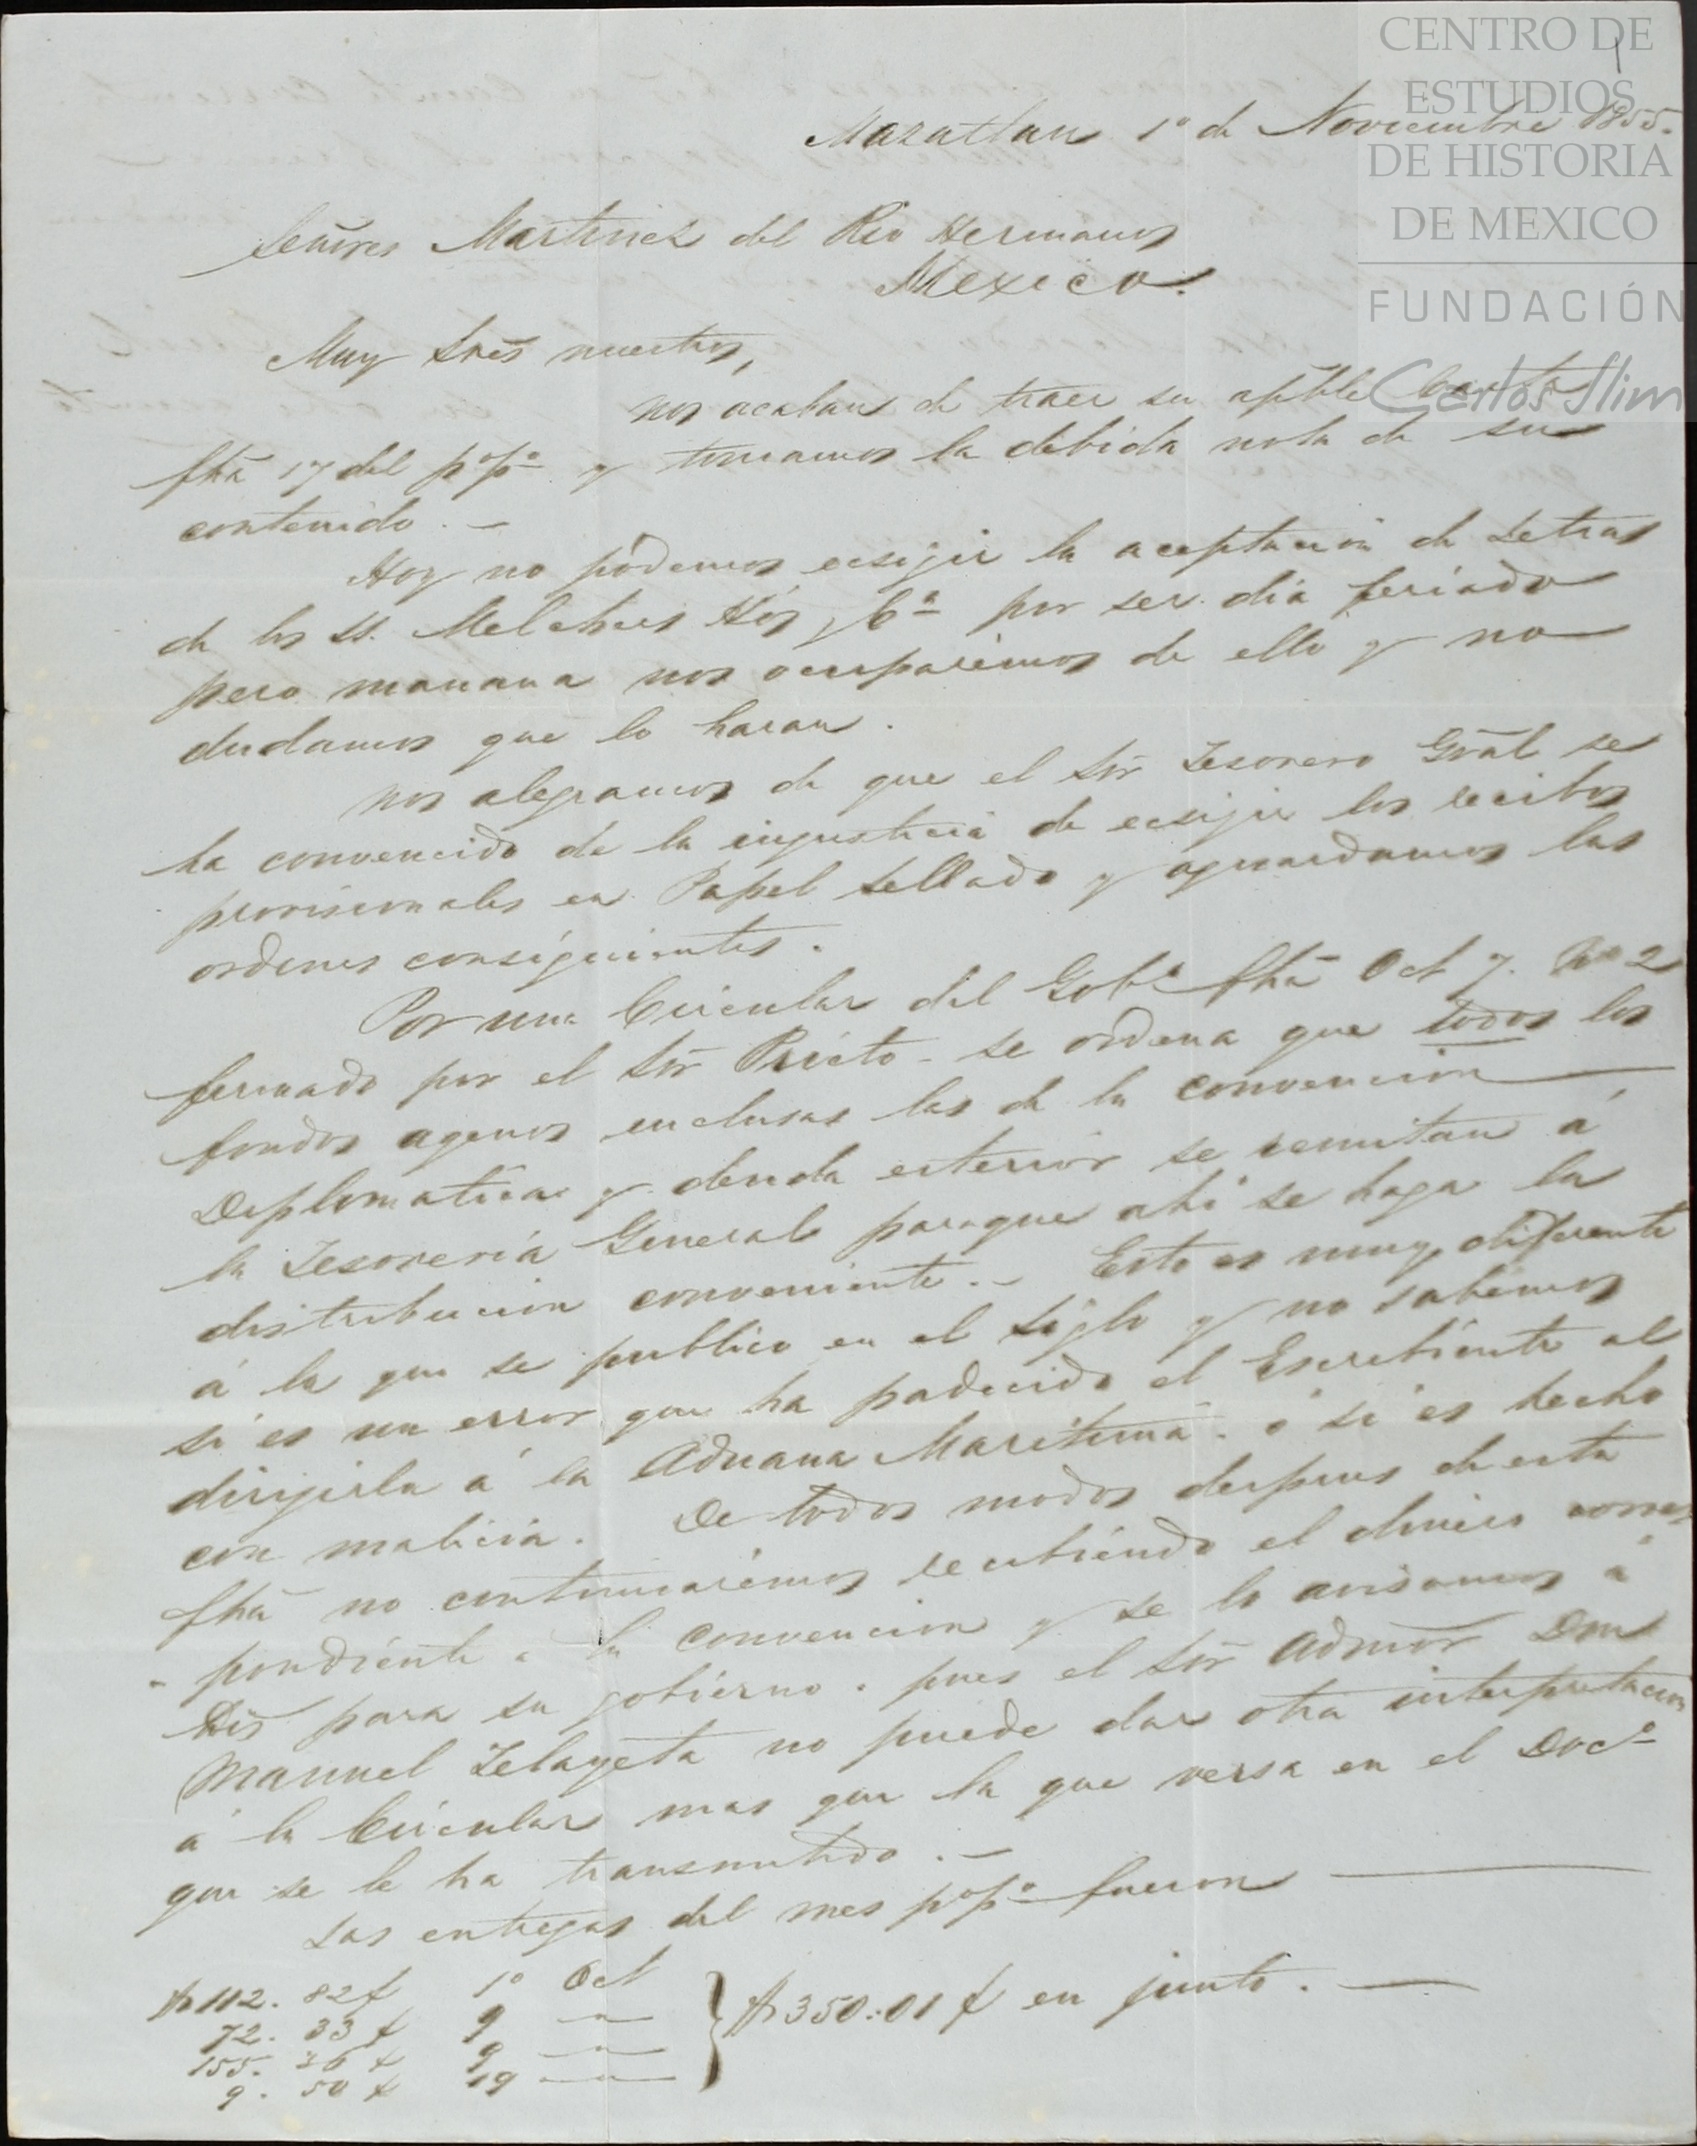 CENTRO DE
ESTUDIOS
DE HISTORIA
DE MEXICO
FUNDACIÓN
Carlos Slim
1
Mazatlan 1º de Noviembre 1855.
Señores Martinez del Rio Hermanos
Mexico.
Muy Srēs nuestros,
nos acaban de traer su apble carta
fha 17 del pºpº y tomamos la debida nota de su
contenido. —
Hoy no pódemos ecsigir la aceptacion de Letras
de los SS. Melchers Hōs y Cª por ser dia feriado
pero manana nos ocuparémos de ello y no
dudamos que lo haran.
Nos alegramos de que el Sōr Tesorero Grāl se
ha convencido de la injusticia de ecsigir los recibos
provisionales en Papel Sellado y aguardamos las
ordenes consiguientes.
Por una Circular del Gobº fha Oct 7. Nº 2
firmado por el Sōr Prieto - se ordena que todos los
fondos agenos inclusas las de la convencion
Diplomatica y deuda esterior se remitan á
la Tesoreria General paraque ahi se haga la
distribucion conveniente. — Esto es muy diferente
á la que se publico en el Siglo y no sabémos
si es un error que ha padecido el Escribiente al
dirijirla á la Aduana Maritima. ó si es hecho
con malicia. De todos modos despues de esta
fha no continuarémos recibiendo el dinero corres
- pondiente a la Convencion y se lo avisamos á
Uds para su gobierno. pues el Sōr Admōr Don
Manuel Zelayeta no puede dar otra interpretacion
á la Circular mas que la que versa en el Docº
que se le ha transmitido. —
Las entregas del mes pºpº fueron
$112. 82 ¢ 1º Oct
72. 33 ¢ 9 —"—
155. 36 ¢ 9 —"—
9. 50 ¢ 19 —"—
} $350:01 ¢ en junto. —